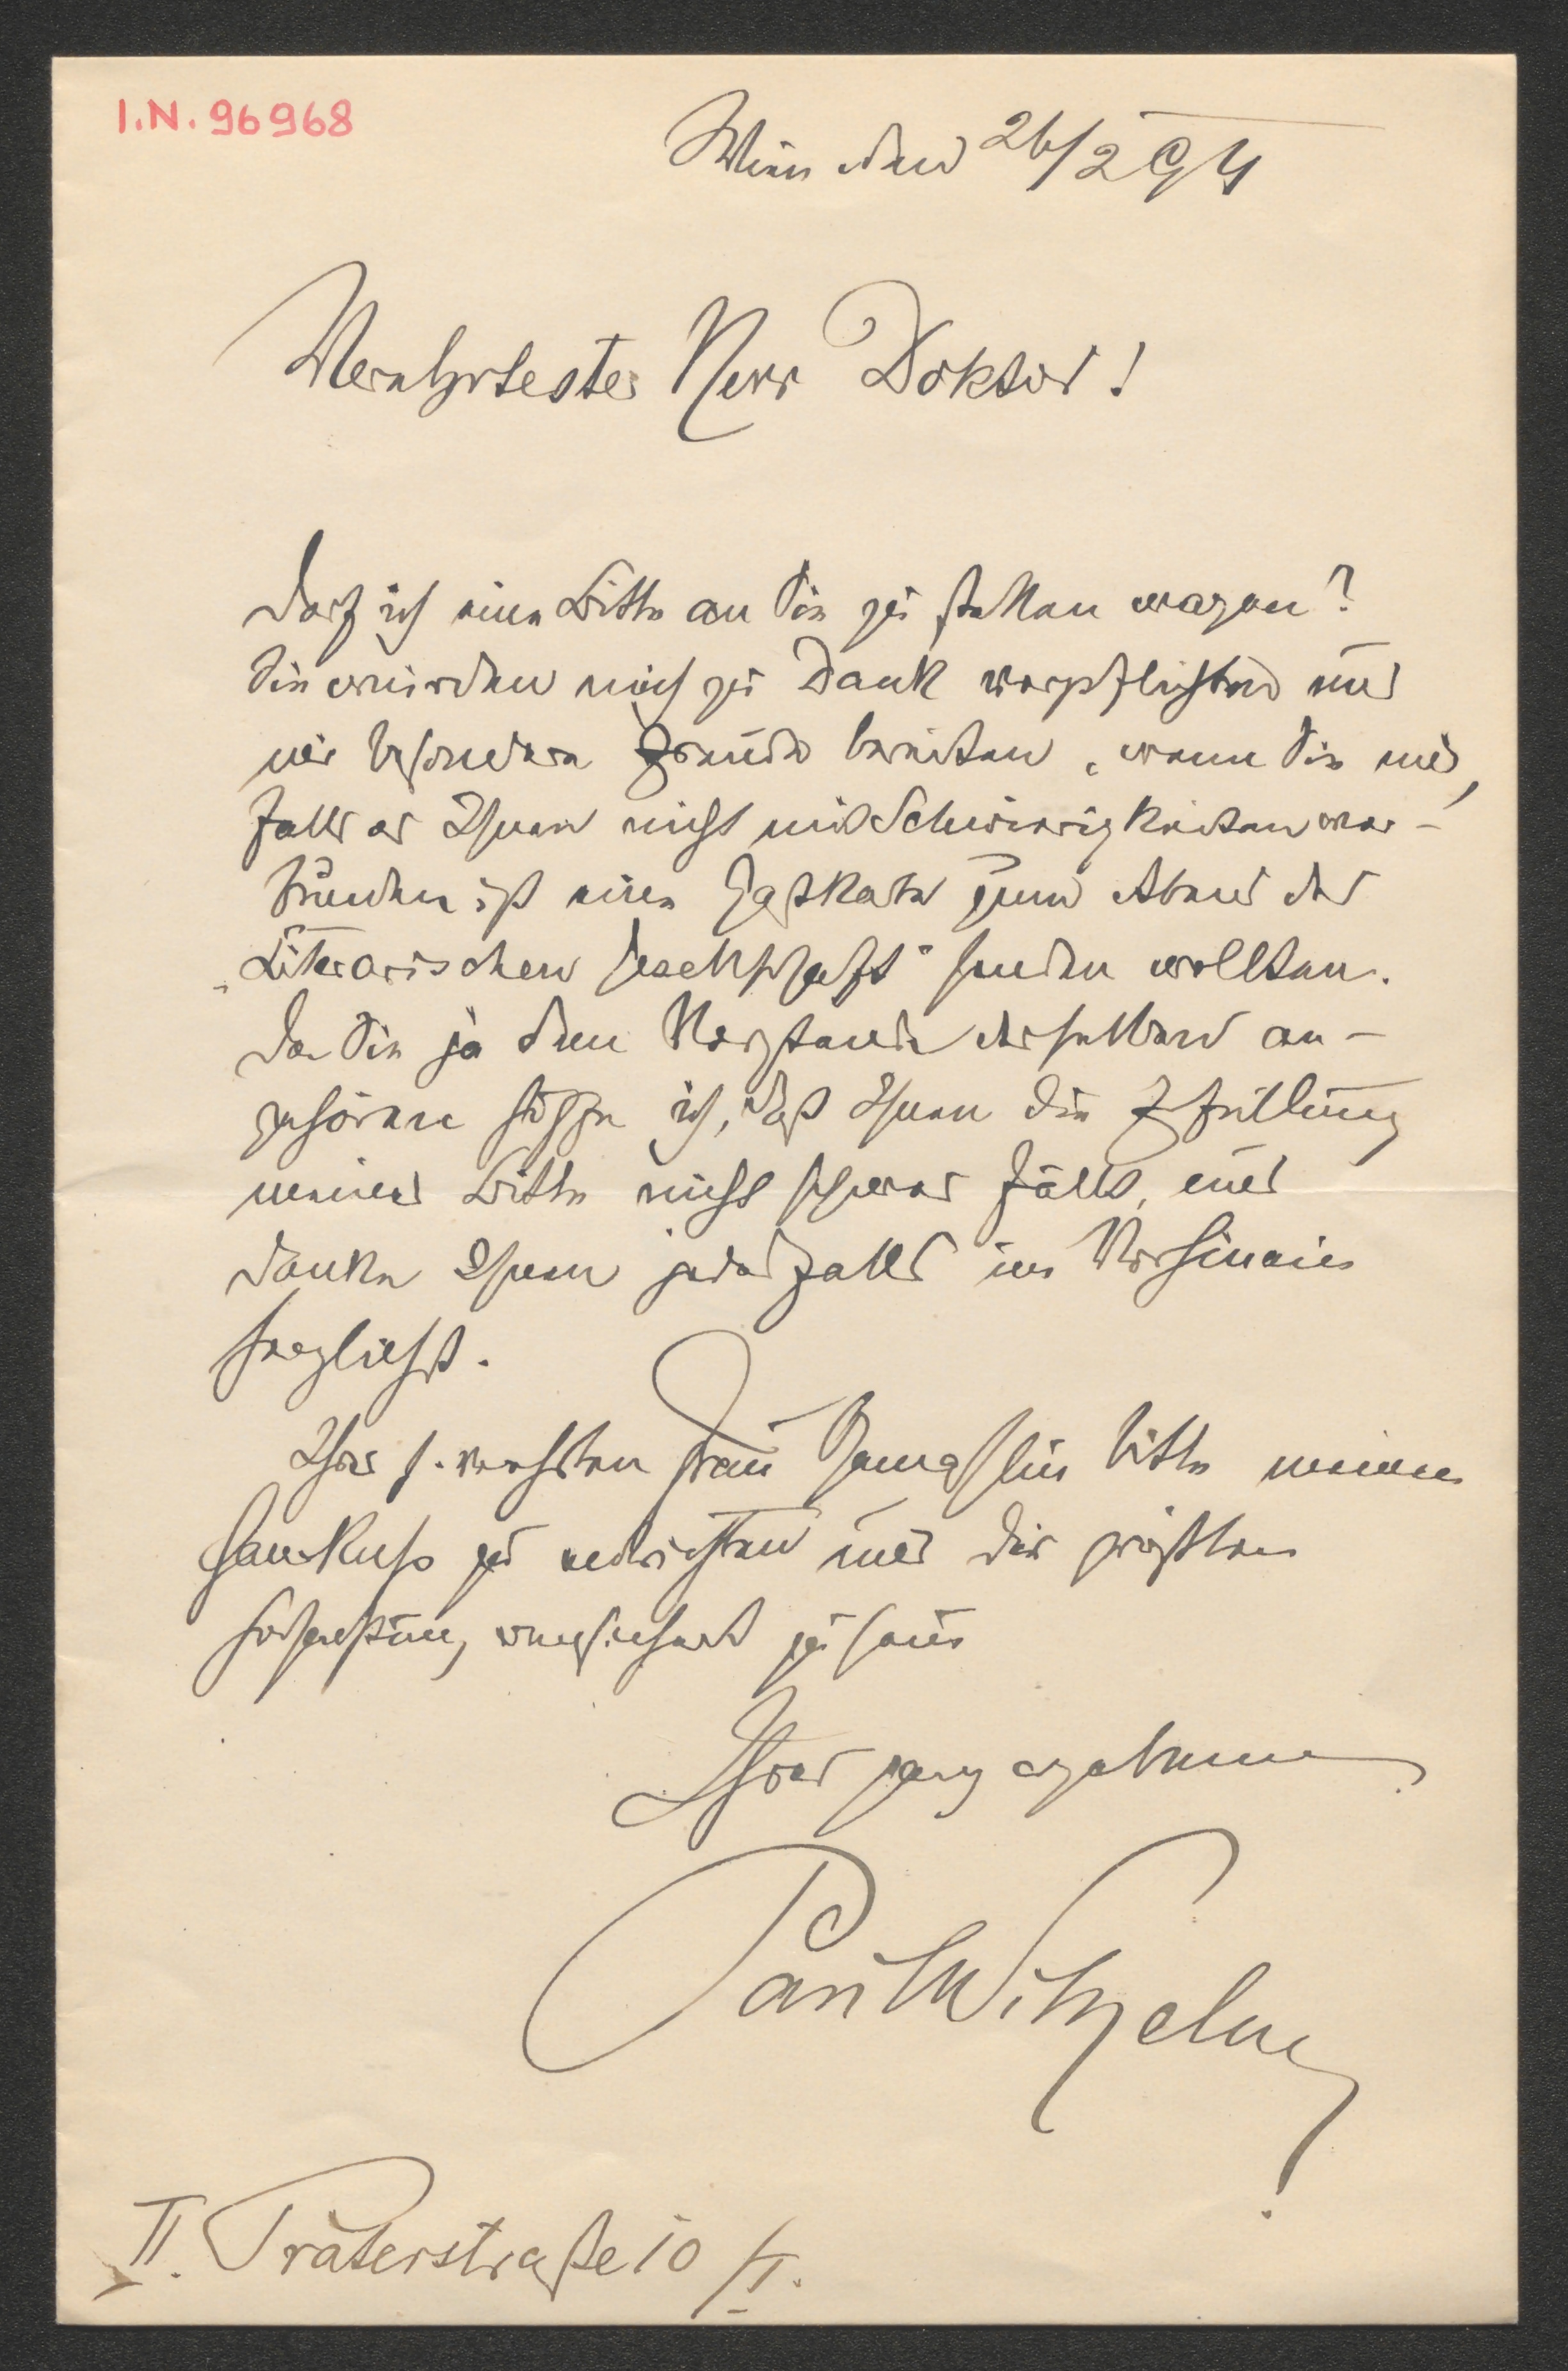 I.N. 96968
Wien den 26/2 94
Verehrtester Herr Doktor!
Darf ich eine Bitte an Sie zu stellen wagen?
Sie würden mich zu Dank verpflichten und
mir besondere Freude bereiten, wenn Sie mir,
falls es Ihnen nicht mit Schwierigkeiten ver-
bunden ist eine Gastkarte zum Abend der
„Literarischen Gesellschaft" senden wollten.
Da Sie ja dem Vorstande derselben an-
gehören hoffe ich, daß Ihnen die Erfüllung
meiner Bitte nicht schwer fällt, und
danke Ihnen jedenfalls im Vorhinein
herzlichst.
Ihrer s. verehrten Frau Gemahlin bitte meinen
Handkuss zu entrichten und der größten
Hochachtung versichert zu sein
Ihres ganz ergebenen
Paul Wilhelm
II. Praterstraße 10 /I.